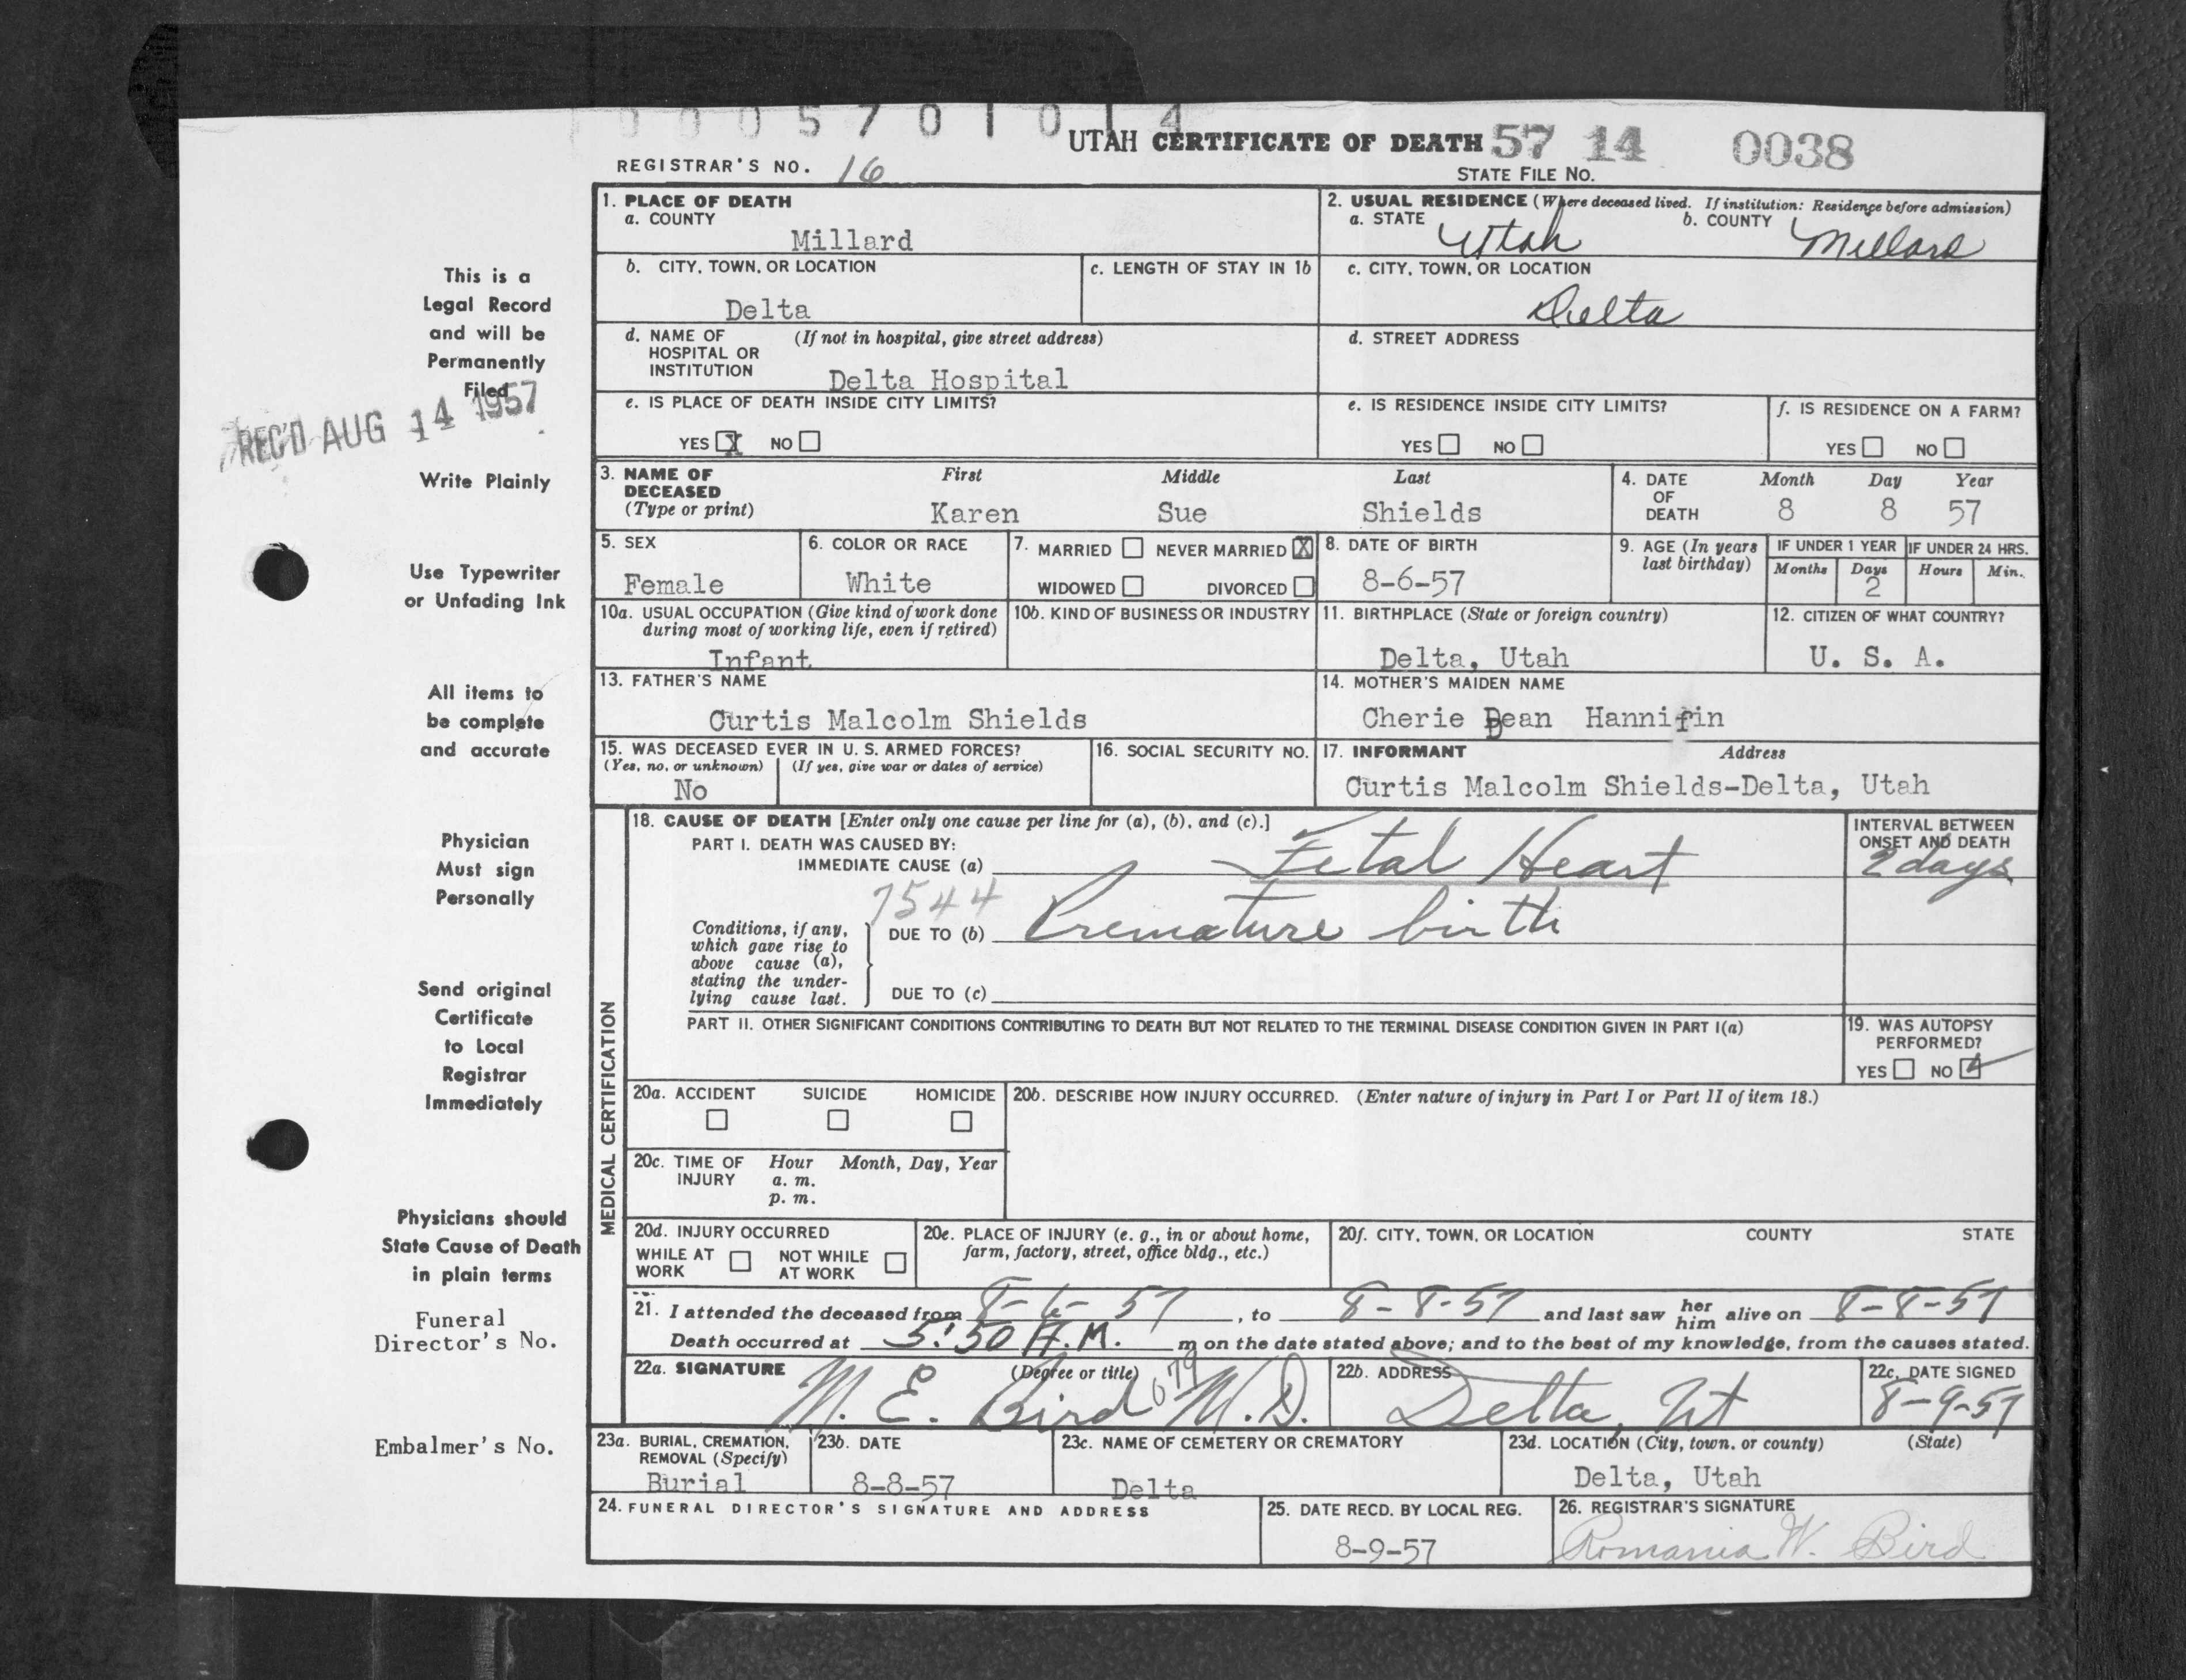 0005701014
UTAH CERTIFICATE OF DEATH 57 14 0038
REGISTRAR'S NO. 16
STATE FILE NO.
1. PLACE OF DEATH
a. COUNTY
Millard
2. USUAL RESIDENCE (Where deceased lived. If institution: Residence before admission)
a. STATE Utah b. COUNTY Millard
b. CITY, TOWN, OR LOCATION
Delta
c. LENGTH OF STAY IN 1b
c. CITY, TOWN, OR LOCATION
Delta
d. NAME OF (If not in hospital, give street address)
HOSPITAL OR
INSTITUTION Delta Hospital
d. STREET ADDRESS
e. IS PLACE OF DEATH INSIDE CITY LIMITS?
YES X NO
e. IS RESIDENCE INSIDE CITY LIMITS?
YES NO
f. IS RESIDENCE ON A FARM?
YES NO
3. NAME OF First Middle Last
DECEASED
(Type or print) Karen Sue Shields
4. DATE Month Day Year
OF
DEATH 8 8 57
5. SEX
Female
6. COLOR OR RACE
White
7. MARRIED NEVER MARRIED X
WIDOWED DIVORCED
8. DATE OF BIRTH
8-6-57
9. AGE (In years
last birthday)
IF UNDER 1 YEAR IF UNDER 24 HRS.
Months Days Hours Min.
2
10a. USUAL OCCUPATION (Give kind of work done
during most of working life, even if retired)
Infant
10b. KIND OF BUSINESS OR INDUSTRY
11. BIRTHPLACE (State or foreign country)
Delta, Utah
12. CITIZEN OF WHAT COUNTRY?
U. S. A.
13. FATHER'S NAME
Curtis Malcolm Shields
14. MOTHER'S MAIDEN NAME
Cherie Dean Hannifin
15. WAS DECEASED EVER IN U. S. ARMED FORCES?
(Yes, no, or unknown) (If yes, give war or dates of service)
No
16. SOCIAL SECURITY NO.
17. INFORMANT Address
Curtis Malcolm Shields-Delta, Utah
MEDICAL CERTIFICATION
18. CAUSE OF DEATH [Enter only one cause per line for (a), (b), and (c).]
PART I. DEATH WAS CAUSED BY:
IMMEDIATE CAUSE (a) Fetal Heart
INTERVAL BETWEEN
ONSET AND DEATH
2 days
7544
Conditions, if any,
which gave rise to
above cause (a),
stating the under-
lying cause last.
DUE TO (b) Premature birth
DUE TO (c)
PART II. OTHER SIGNIFICANT CONDITIONS CONTRIBUTING TO DEATH BUT NOT RELATED TO THE TERMINAL DISEASE CONDITION GIVEN IN PART I(a)
19. WAS AUTOPSY
PERFORMED?
YES NO
20a. ACCIDENT SUICIDE HOMICIDE
20b. DESCRIBE HOW INJURY OCCURRED. (Enter nature of injury in Part I or Part II of item 18.)
20c. TIME OF Hour Month, Day, Year
INJURY a. m.
p. m.
20d. INJURY OCCURRED
WHILE AT NOT WHILE
WORK AT WORK
20e. PLACE OF INJURY (e. g., in or about home,
farm, factory, street, office bldg., etc.)
20f. CITY, TOWN, OR LOCATION COUNTY STATE
21. I attended the deceased from 8-6-57, to 8-8-57 and last saw her him alive on 8-8-57
Death occurred at 5:50 A.M. m on the date stated above; and to the best of my knowledge, from the causes stated.
22a. SIGNATURE (Degree or title) 079
M. E. Bird M.D.
22b. ADDRESS
Delta, Ut
22c. DATE SIGNED
8-9-57
23a. BURIAL, CREMATION,
REMOVAL (Specify)
Burial
23b. DATE
8-8-57
23c. NAME OF CEMETERY OR CREMATORY
Delta
23d. LOCATION (City, town, or county) (State)
Delta, Utah
24. FUNERAL DIRECTOR'S SIGNATURE AND ADDRESS
25. DATE RECD. BY LOCAL REG.
8-9-57
26. REGISTRAR'S SIGNATURE
Romania W. Bird
This is a
Legal Record
and will be
Permanently
Filed
REC'D AUG 14 1957
Write Plainly
Use Typewriter
or Unfading Ink
All items to
be complete
and accurate
Physician
Must sign
Personally
Send original
Certificate
to Local
Registrar
Immediately
Physicians should
State Cause of Death
in plain terms
Funeral
Director's No.
Embalmer's No.